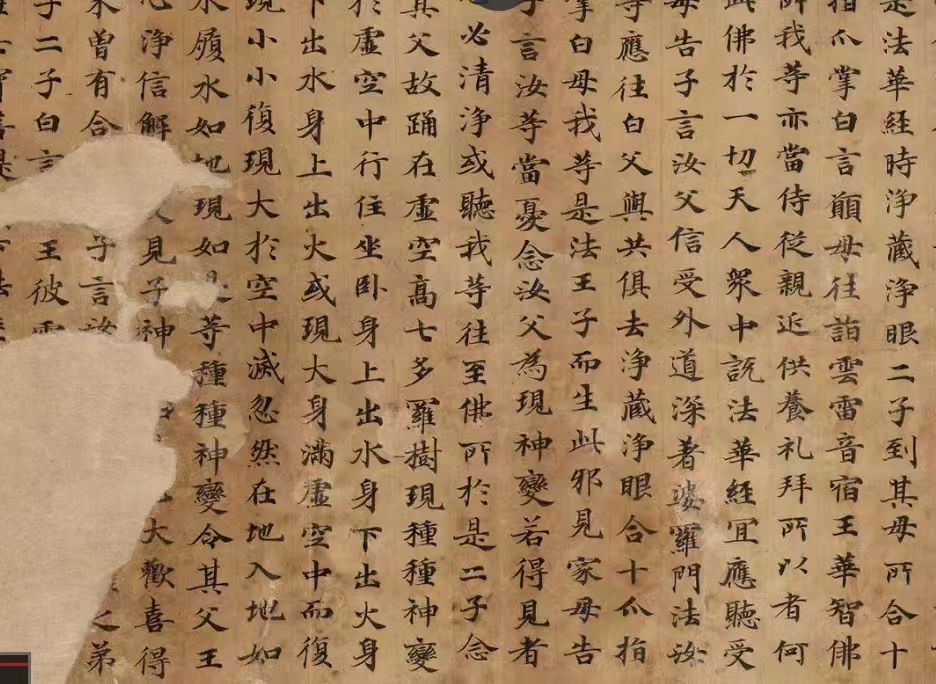 是法華経時浄蔵浄眼二子到其母所合十
指爪掌白言願母往詣雲雷音宿王華智佛
所我等亦當侍従親近供養礼拜所以者何
此佛於一切天人衆中說法華経宜應聽受
母告子言汝父信受外道深著婆羅門法汝
等應往白父與共俱去浄蔵浄眼合十爪指
掌白母我等是法王子而生此邪見家母告
子言汝等當憂念汝父為現神變若得見者
心必清浄或聽我等往至佛所於是二子念
其父故踊在虛空高七多羅樹現種種神變
於虛空中行住坐卧身上出水身下出火身
下出水身上出火或現大身滿虛空中而復
現小小復現大於空中滅忽然在地入地如
水履水如地現如是等種種神變令其父王
心浄信解見子神大歡喜得
未曾有合子言汝之弟
子二子白言王彼